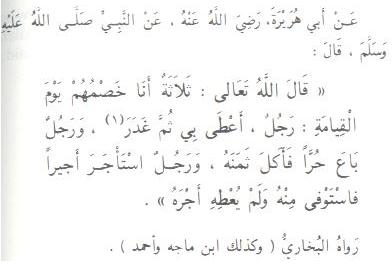 عَنْ أَبِي هُرَيْرَةَ، رَضِيَ اللَّهُ عَنْهُ ، عَنْ النَّبِيِّ صَلَّى اللَّهُ عَلَيْهِ
وَسَلَّمَ ، قَالَ :
« قَالَ اللَّهُ تَعَالَى : ثَلَاثَةٌ أَنَا خَصْمُهُمْ يَوْمَ
الْقِيَامَةِ : رَجُلٌ ، أَعْطَى بِي ثُمَّ غَدَرَ(١) ، وَرَجُلٌ
بَاعَ حُرًّا فَأَكَلَ ثَمَنَهُ ، وَرَجُلٌ اسْتَأْجَرَ أَجِيراً
فَاسْتَوْفَى مِنْهُ وَلَمْ يُعْطِهِ أَجْرَهُ » .
رَوَاهُ الْبُخَارِيُّ ( وَكَذلِكَ ابن ماجه وأحمد ) .